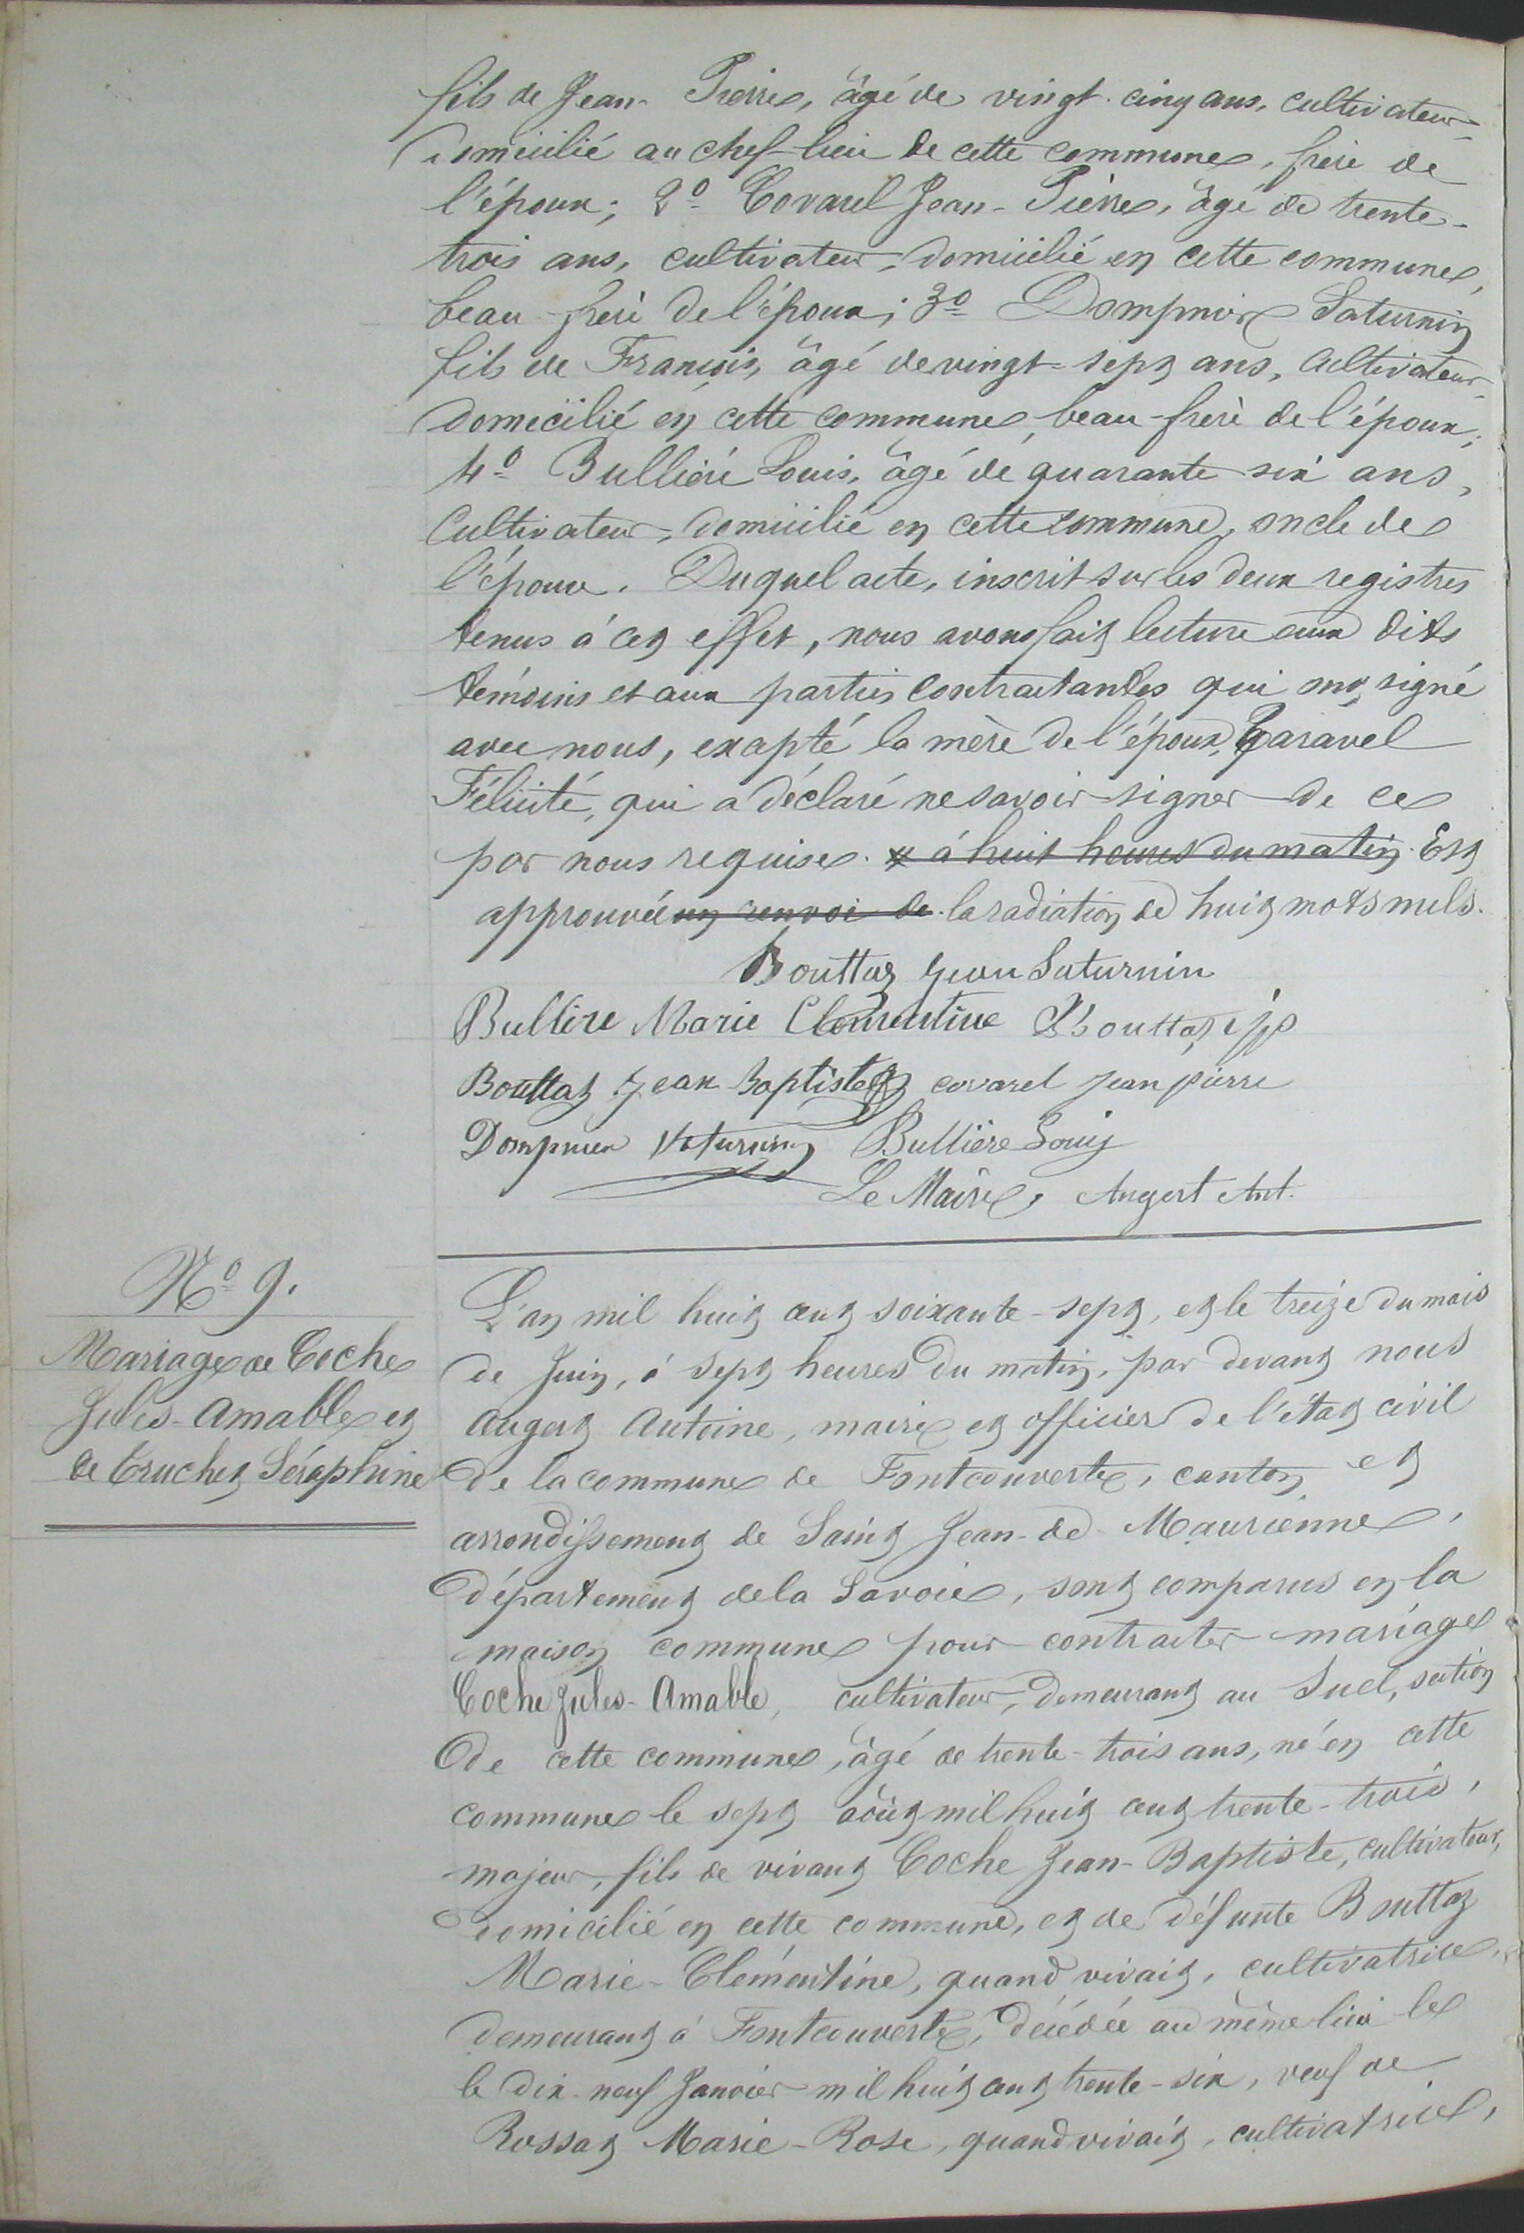 fils de Jean-Pierre, âgé de vingt-cinq ans, cultivateur,
domicilié au chef-lieu de cette commune, frère de
l'époux; 2º Covarel Jean-Pierre, âgé de trente-
trois ans, cultivateur, domicilié en cette commune,
beau-frère de l'époux; 3º Dompnier Saturnin
fils de François, âgé de vingt-sept ans, cultivateur,
domicilié en cette commune, beau-frère de l'époux;
4º Bullière Louis, âgé de quarante-six ans,
Cultivateur, domicilié en cette commune, oncle de
l'épouse. Duquel acte, inscrit sur les deux registres
tenus à cet effet, nous avons fait lecture aux dits
témoins et aux parties contractantes qui ont signé
avec nous, excepté la mère de l'époux, Taravel
Félicité, qui a déclaré ne savoir signer de ce
par nous requise. à huit heures du matin. Est
approuvée un renvoi de la radiation de huit mots nuls.
Bouttaz Jean Saturnin
Bullire Marie Clementine Bouttaz jp
Bouttaz Jean Baptiste covarel jean pierre
Dompnier Saturnin Bullière Louis
Le Maire, Augert Ant.
Nº 9.
Mariage de Coche
Jules-Amable et
de Truchet Séraphine
L'an mil huit cent soixante-sept, et le treize du mois
de Juin, à sept heures du matin, par devant nous
Augert Antoine, maire et officier de l'état civil
de la commune de Fontcouverte, canton et
arrondissement de Saint Jean-de-Maurienne,
département de la Savoie, sont comparus en la
maison commune pour contracter mariage
Coche Jules-Amable, cultivateur, demeurant au Suel, section
de cette commune, âgé de trente-trois ans, né en cette
commune le sept août mil huit cent trente-trois,
majeur, fils de vivant Coche Jean-Baptiste, cultivateur,
domicilié en cette commune, et de défunte Bouttaz
Marie-Clémentine, quand vivait, cultivatrice,
demeurant à Fontcouverte, décédée au même lieu le
le dix-neuf Janvier mil huit cent trente-six, veuf de
Rossat Marie-Rose, quand vivait, cultivatrice,